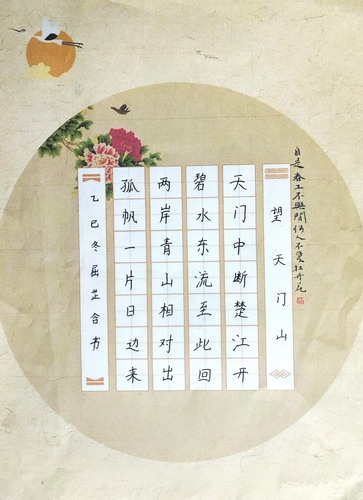 自是春工不與閒何人不愛牡丹花
望天门山
天门中断楚江开
碧水东流至此回
两岸青山相对出
孤帆一片日边来
乙巳冬屈芷含书